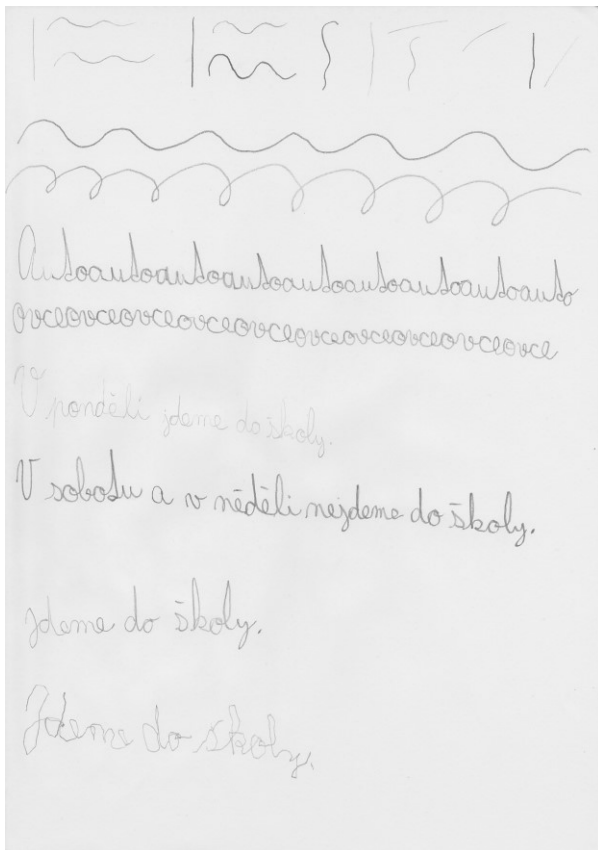 Autoautoautoautoautoautoautoautoauto
ovceovceovceovceovceovceovceovceovceovce
V ponděli jdeme do školy.
V sobotu a v něděli nejdeme do školy.
jdeme do školy.
Jdeme do školy.